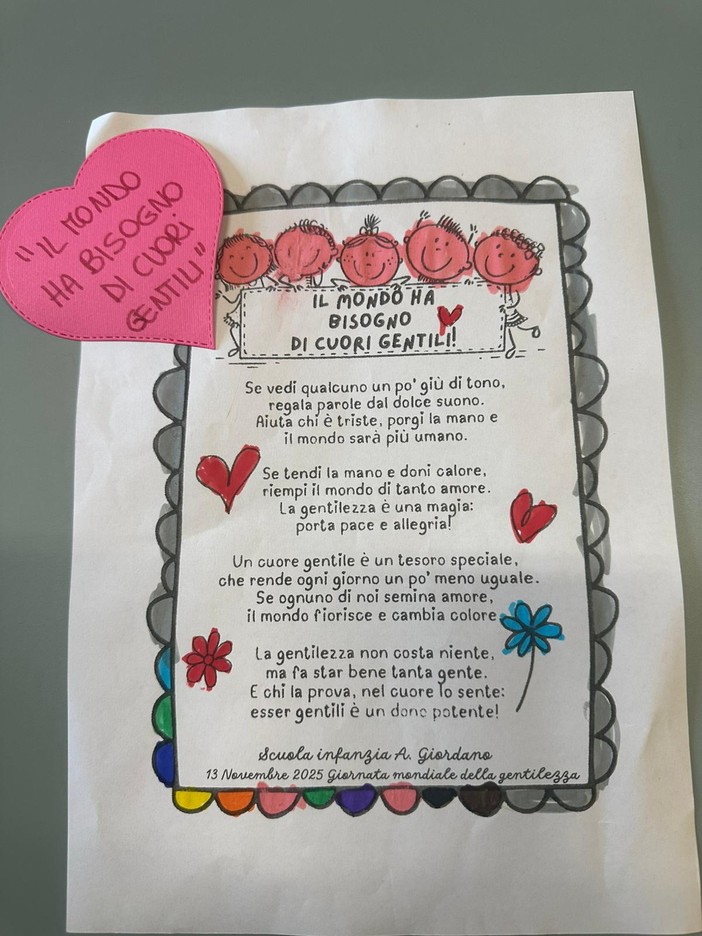 "IL MONDO
HA BISOGNO
DI CUORI
GENTILI"
IL MONDO HA
BISOGNO
DI CUORI GENTILI!
Se vedi qualcuno un po' giù di tono,
regala parole dal dolce suono.
Aiuta chi è triste, porgi la mano e
il mondo sarà più umano.
Se tendi la mano e doni calore,
riempi il mondo di tanto amore.
La gentilezza è una magia:
porta pace e allegria!
Un cuore gentile è un tesoro speciale,
che rende ogni giorno un po' meno uguale.
Se ognuno di noi semina amore,
il mondo fiorisce e cambia colore.
La gentilezza non costa niente,
ma fa star bene tanta gente.
E chi la prova, nel cuore lo sente:
esser gentili è un dono potente!
Scuola infanzia A. Giordano
13 Novembre 2025 Giornata mondiale della gentilezza